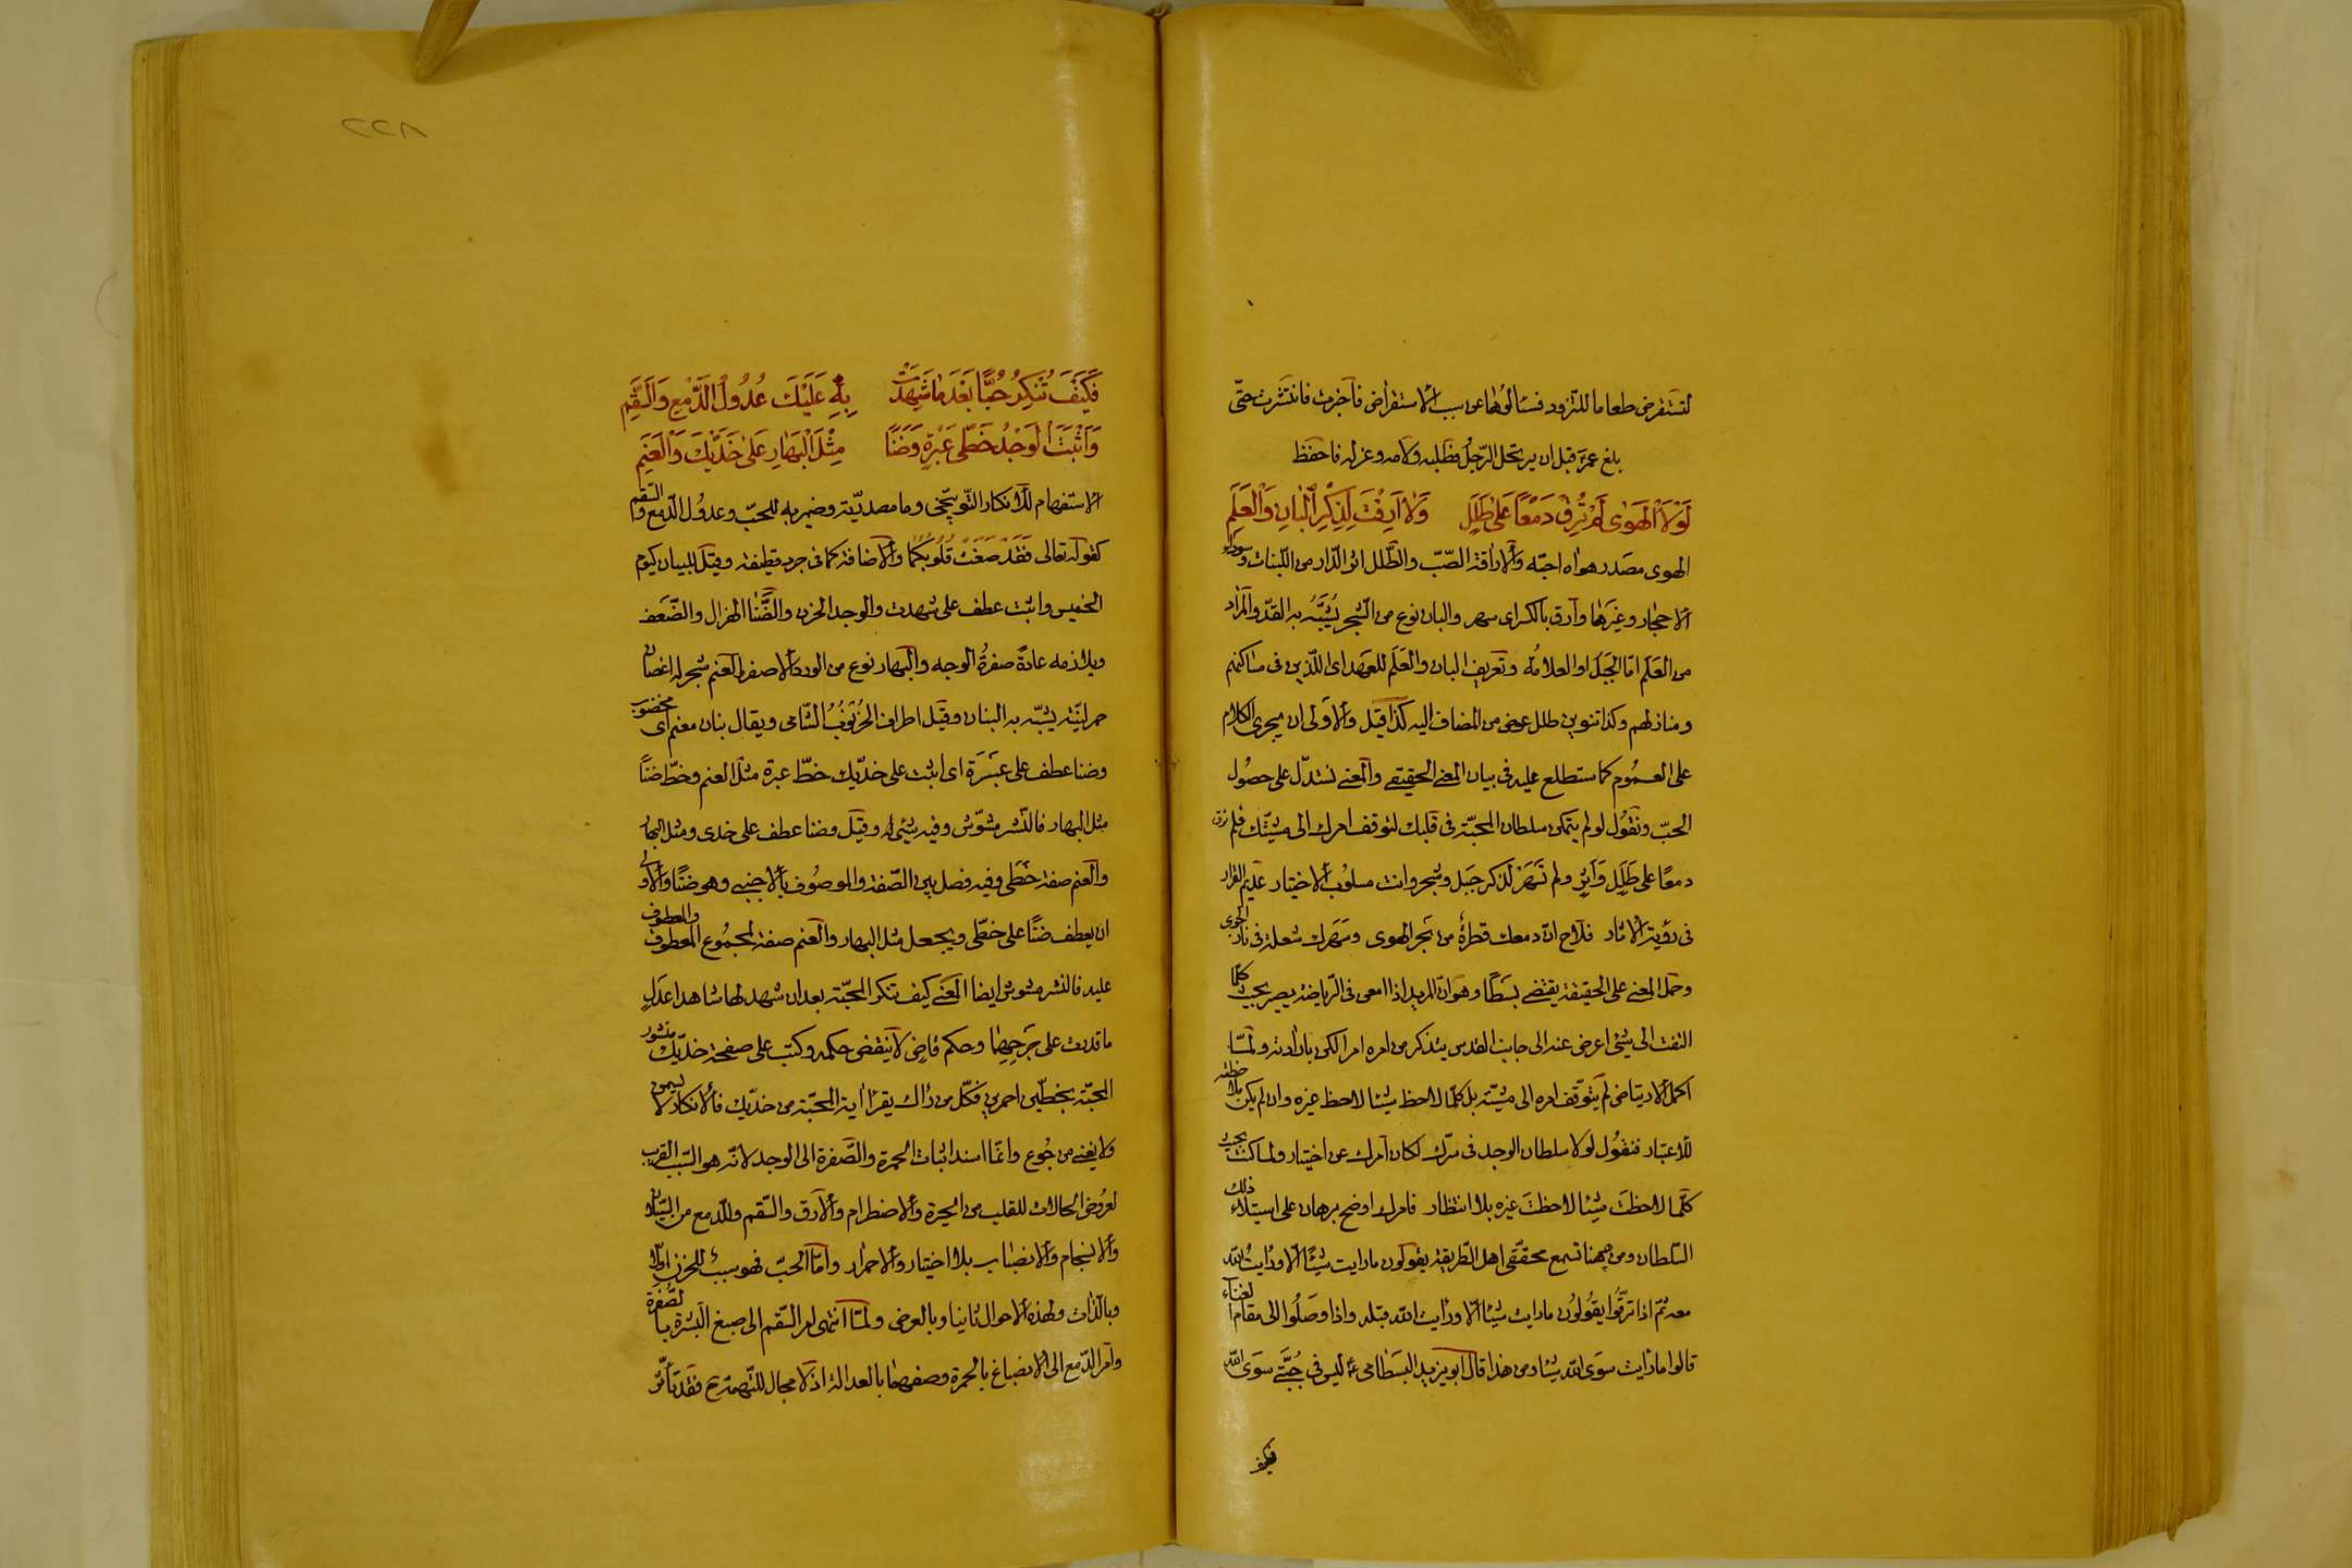 لتستقرض طعاما للتزود فسئالوها عن سبب الاستقراض فاخبرت فانتشرت حتى
بلغ عمر قبل ان يرتحل الرجل فطلبه ولامه وعزله فاحفظ
لَوْلَا الْهَوٰى لَمْ تُرِقْ دَمْعًا عَلٰى طَلَلٍ وَلَا اَرِقْتَ لِذِكْرِ الْبَانِ وَالْعَلَمِ
الهوى مصدر هواه احبّه والاراقة الصّبّ والطّلل اثر الدّار من اللّبنات و
الاحجار وغيرها وارق بالكسر اى سهر والبان نوع من الشّجر يُشَبَّهُ به القدّ والمراد
من العَلَم امّا الجَبَل او العلامة وتعريف البان والعَلَم للعهد اى اللّذين فى مساكنهم
ومنازلهم وكذا تنوين طلل عوض من المضاف اليه كذا قيل والاولى ان يجرى الكلام
على العموم كما ستطلع عليه فى بيان المعنى الحقيقى والمعنى نستدلّ على حصُول
الحبّ ونقُول لو لم يتمكن سلطان المحبّة فى قلبك لتوقف امرك الى مشيّتك فلم ترق
دمعًا على طَلَلٍ وَاَثَرٍ ولم تَسْهَرْ لذكر جَبَل وشجر وانت مسلوب الاختيار عديم القرار
فى رؤية الاثار فلاح انّ دمعك قطرةٌ من بحر الهوى وسَهَرك شعلة فى نار الجوى
وحمل المعنى على الحقيقة يقتضى بَسْطًا وهو انّ المريد اذا امعن فى الرّياضة يصير بحيث كلّما
التفت الى شئ اعرض عنه الى جانب القدس يتذكر من امره امرا لكن بارادته ولمّا
اكمل الارتياض لم يتوقّف امره الى مشيّته بل كلّما لاحظ شيئا لاحظ غيره وان لم يكن ملاحظته
للاعتبار فنقُول لولا سلطان الوجد فى سرّك لكان امرك عن اختيار ولما كنت بحيث
كلّما لاحظتَ شيئا لاحظتَ غيره بلا انتظار فامرك اوضح برهان على استيلاء ذلك
السّلطان ومن ههنا تسمع محقّقى اهل الطّريقة يقولون ما رايت شيئًا الّا ورايت الله
معه ثمّ اذا ترقّوا يقُولُون ما رايت شيئا الّا ورايت الله قبله واذا وصَلُوا الى مقام الفناء
قالوا ما رايت سوى الله شيئا ومن هذا قال ابو يزيد البسطامى ليس فى جُبّتى سوى الله
فكيف
٢٢٨
فَكَيْفَ تُنْكِرُ حُبًّا بَعْدَ مَا شَهِدَتْ بِهٖ عَلَيْكَ عُدُولُ الدَّمْعِ وَالسَّقَمِ
وَاَثْبَتَ الْوَجْدُ خَطَّى عَبْرَةٍ وَضَنًا مِثْلَ الْبَهَارِ عَلٰى خَدَّيْكَ وَالْعَنَمِ
الاستفهام للانكار التّوبيخى وما مصدريّة وضمير به للحبّ وعدُول الدّمع والسّقم
كقوله تعالى فقد صَغَتْ قلُوبكما والاضافة كما فى جرد قطيفة وقيل للبيان كيوم
الخميس واثبت عطف على شهدت والوجد الحزن والضّنا الهزال والضّعف
ويلازمه عادةً صفرةُ الوجه والبهار نوع من الورد الاصفر العنم شجر له اغصان
حمر ليّنة يشبّه به البنان وقيل اطراف الخُرنُوب الشّامى ويقال بنان معنم اى مخضوب
وضنا عطف على عَبْرَة اى اثبت على خدّيك خطّ عبرة مثل العنم وخطّ ضناً
مثل البهار فالنّشر مشوّش وفيه شئ وقيل وضنا عطف على خدى ومثل البهار
والعنم صفة خَطّى وفيه فصل بين الصّفة والموصُوف بالاجنبى وهو ضنًا والاولى
ان يعطف ضنًا على خطّى ويجعل مثل البهار والعنم صفة لمجمُوع المعطوف والمعطوف
عليه فالنشر مشوش ايضا المعنى كيف تنكر المحبّة بعد ان شهد لها شاهدا عدلٍ
ما قدرت على جَرْحِهِمَا وحكم قاضٍ لا ينقض حكمه وكتب على صفحة خدّيك منشور
المحبّة بخطّين احمرين فكلّ من راك يقرأ اية المحبّة من خدّيك فالانكار لا يسمن
ولا يغنى من جُوع وانّما اسند اثبات الحمرة والصّفرة الى الوجد لانّه هو السّبب القريب
لعرُوض الحالات للقلب من الحيرة والاضطرام والارق والسّقم وللدّمع من السّيلان
والانسجام والانصباب بلا اختيار والاحمرار وامّا الحبّ فهو سببٌ للحزن اوّلا
وبالذّات ولهذه الاحوال ثانيا وبالعرض ولمّا انتهى امر السّقم الى صبغ البشرة بالصّفرة
وامر الدّمع الى الانصباغ بالحمرة وصفهما بالعدالة اذ لا مجال للتّهمة فقد تأثّر